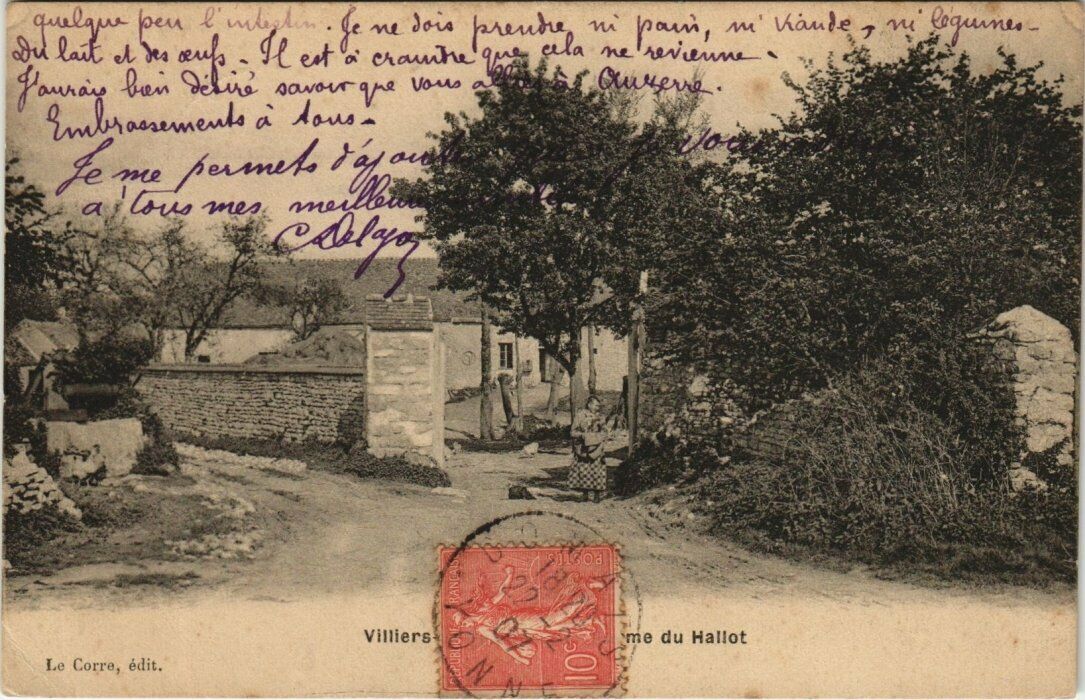 quelque peu l'intestin. Je ne dois prendre ni pain, ni viande, ni légumes-
Du lait et des œufs - Il est à craindre que cela ne revienne -
J'aurais bien désiré savoir que vous alliez à Auxerre.
Embrassements à tous -
Je me permets d'ajouter vous
à tous mes meilleurs
CDelajon
Villiers me du Hallot
Le Corre, édit.
RÉPUBLIQUE FRANÇAISE
POSTES
10c
18
22-2
07
YONNE